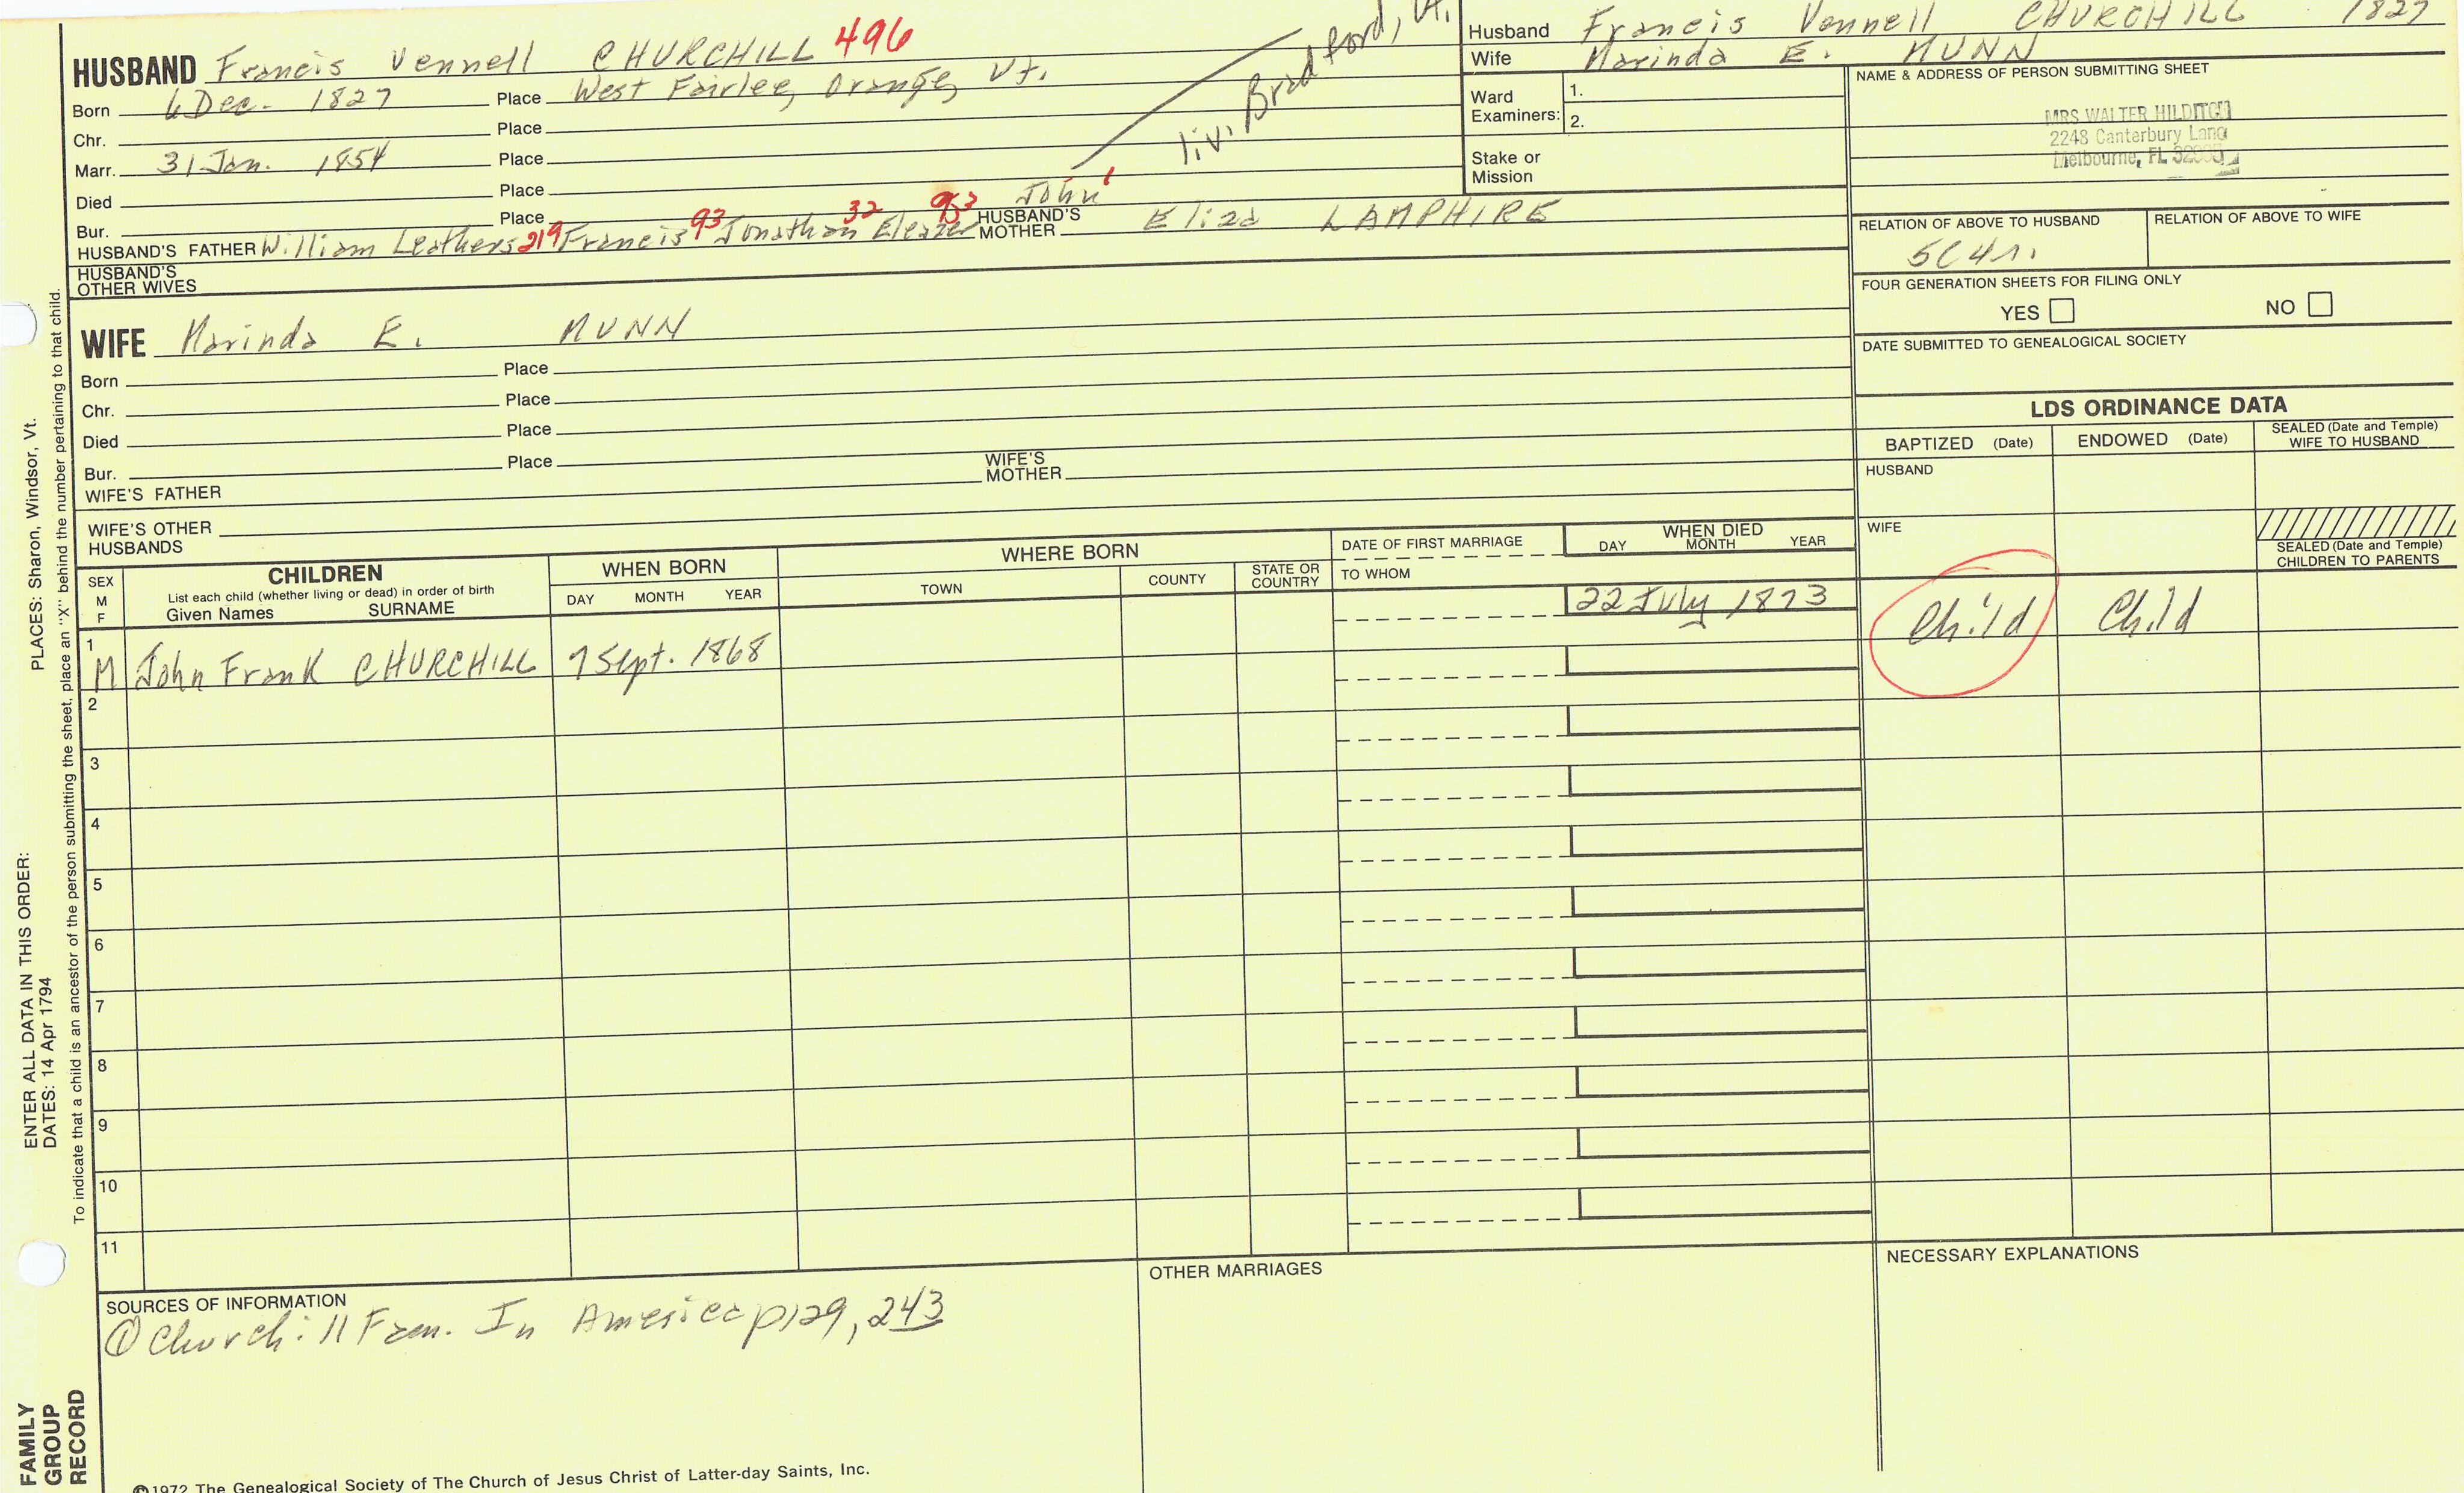 HUSBAND Francis Vennell CHURCHILL 496
Born 6 Dec. 1827 Place West Fairlee, Orange, Vt.
Chr. Place
Marr. 31 Jan. 1854 Place
Died Place
Bur. Place
liv. Bradford, Vt.
John
HUSBAND'S FATHER William Leathers 219 Francis 93 Jonathan 32 Eleazer HUSBAND'S MOTHER Eliza LAMPHIRE
HUSBAND'S OTHER WIVES
WIFE Marinda E. MUNN
Born Place
Chr. Place
Died Place
Bur. Place
WIFE'S FATHER WIFE'S MOTHER
WIFE'S OTHER HUSBANDS
Husband Francis Vennell CHURCHILL 1827
Wife Marinda E. MUNN
Ward Examiners: 1.
2.
Stake or Mission
NAME & ADDRESS OF PERSON SUBMITTING SHEET
MRS WALTER HILDITCH
2248 Canterbury Lane
Melbourne, FL
RELATION OF ABOVE TO HUSBAND RELATION OF ABOVE TO WIFE
5C4r.
FOUR GENERATION SHEETS FOR FILING ONLY
YES NO
DATE SUBMITTED TO GENEALOGICAL SOCIETY
LDS ORDINANCE DATA
BAPTIZED (Date) ENDOWED (Date) SEALED (Date and Temple) WIFE TO HUSBAND
HUSBAND
WIFE
SEALED (Date and Temple) CHILDREN TO PARENTS
SEX M F
CHILDREN
List each child (whether living or dead) in order of birth
Given Names SURNAME
WHEN BORN
DAY MONTH YEAR
WHERE BORN
TOWN COUNTY STATE OR COUNTRY
DATE OF FIRST MARRIAGE
TO WHOM
WHEN DIED
DAY MONTH YEAR
1 M John Frank CHURCHILL 7 Sept. 1868 22 July 1873 Child Child
2
3
4
5
6
7
8
9
10
11
SOURCES OF INFORMATION
① Churchill Fam. In America p129, 243
OTHER MARRIAGES
NECESSARY EXPLANATIONS
©1972 The Genealogical Society of The Church of Jesus Christ of Latter-day Saints, Inc.
FAMILY GROUP RECORD
ENTER ALL DATA IN THIS ORDER:
DATES: 14 Apr 1794
PLACES: Sharon, Windsor, Vt.
To indicate that a child is an ancestor of the person submitting the sheet, place an "X" behind the number pertaining to that child.